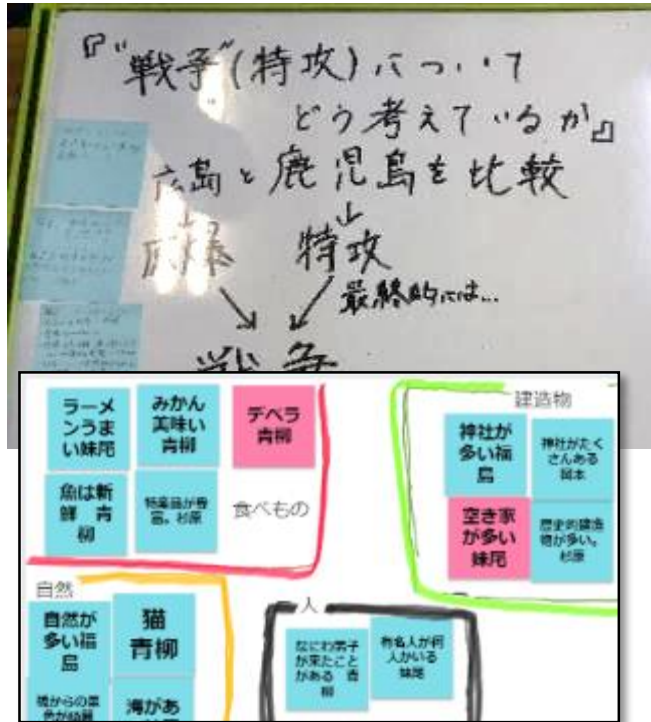 『"戦争"(特攻)について
どう考えているか』
広島と鹿児島を比較
↓ ↓
原爆 特攻
最終的には...
戦争
ラーメ
ンうま
い妹尾
みかん
美味い
青柳
デベラ
青柳
魚は新
鮮 青
柳
特産品が豊
富。杉原
食べもの
建造物
神社が
多い福
島
神社がたく
さんある
岡本
空き家
が多い
妹尾
歴史的建造
物が多い。
杉原
自然
自然が
多い福
島
猫
青柳
橋からの景
色が綺麗
海があ
人
なにわ男子
が来たこと
がある 青
柳
有名人が何
人かいる
妹尾